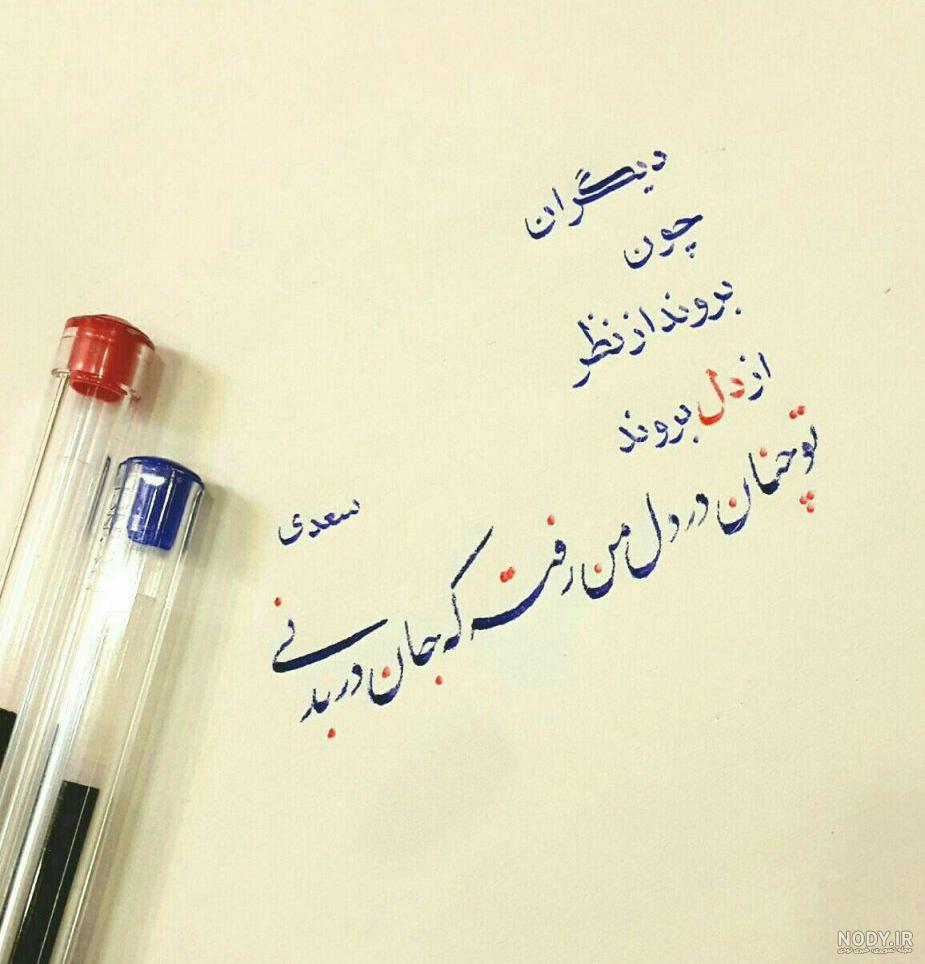 دیگران
چون
بروند از نظر
از دل بروند
تو چنان در دل من رفته که جان در بدنی
سعدی
NODY.IR